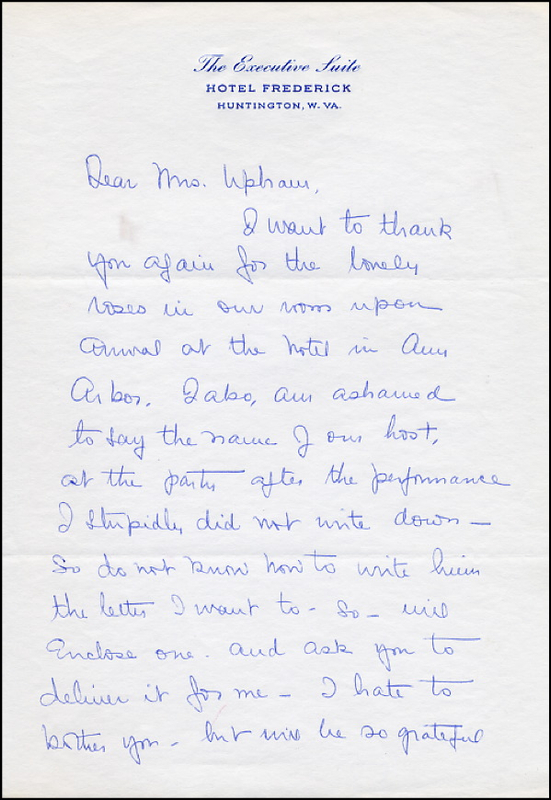 The Executive Suite
HOTEL FREDERICK
HUNTINGTON, W. VA.
Dear Mrs. Upham,
I want to thank
you again for the lovely
roses in our room upon
arrival at the hotel in Ann
Arbor. I also, am ashamed
to say the name of our host,
at the party after the performance
I stupidly did not write down —
So do not know how to write him
the letter I want to - so - will
Enclose one - and ask you to
deliver it for me - I hate to
bother you - but will be so grateful